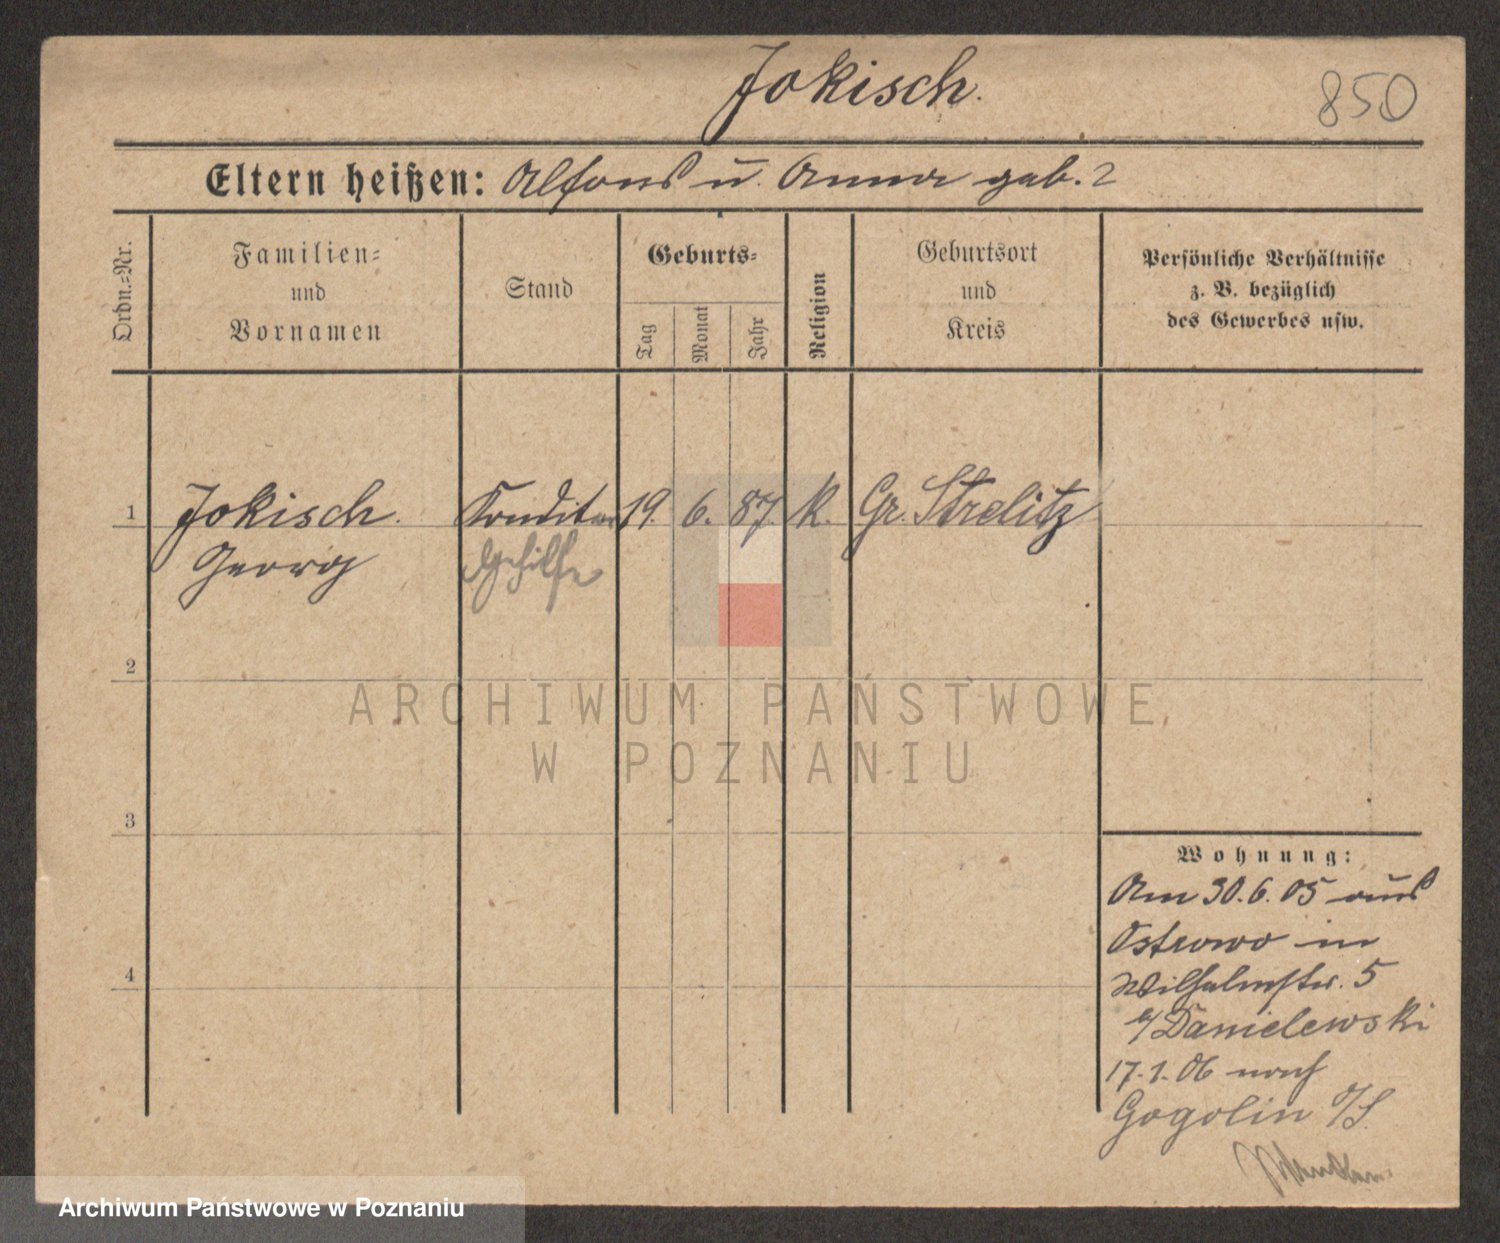 Jokisch.
850
Eltern heißen: Alfons u. Anna geb. ?
Ordn.-Nr.
Familien-
und
Vornamen
Stand
Geburts-
Tag
Monat
Jahr
Religion
Geburtsort
und
Kreis
Persönliche Verhältnisse
z. B. bezüglich
des Gewerbes usw.
1 Jokisch. Konditor 19. 6. 87. K. Gr. Strelitz
Georg Gehilfe
2
ARCHIWUM PAŃSTWOWE
W POZNANIU
3
Wohnung:
Am 30.6.05 aus
Ostrowo in
4
Wilhelmstr. 5
b/ Danielewski
17.1.06 nach
Gogolin O/S.
Archiwum Państwowe w Poznaniu